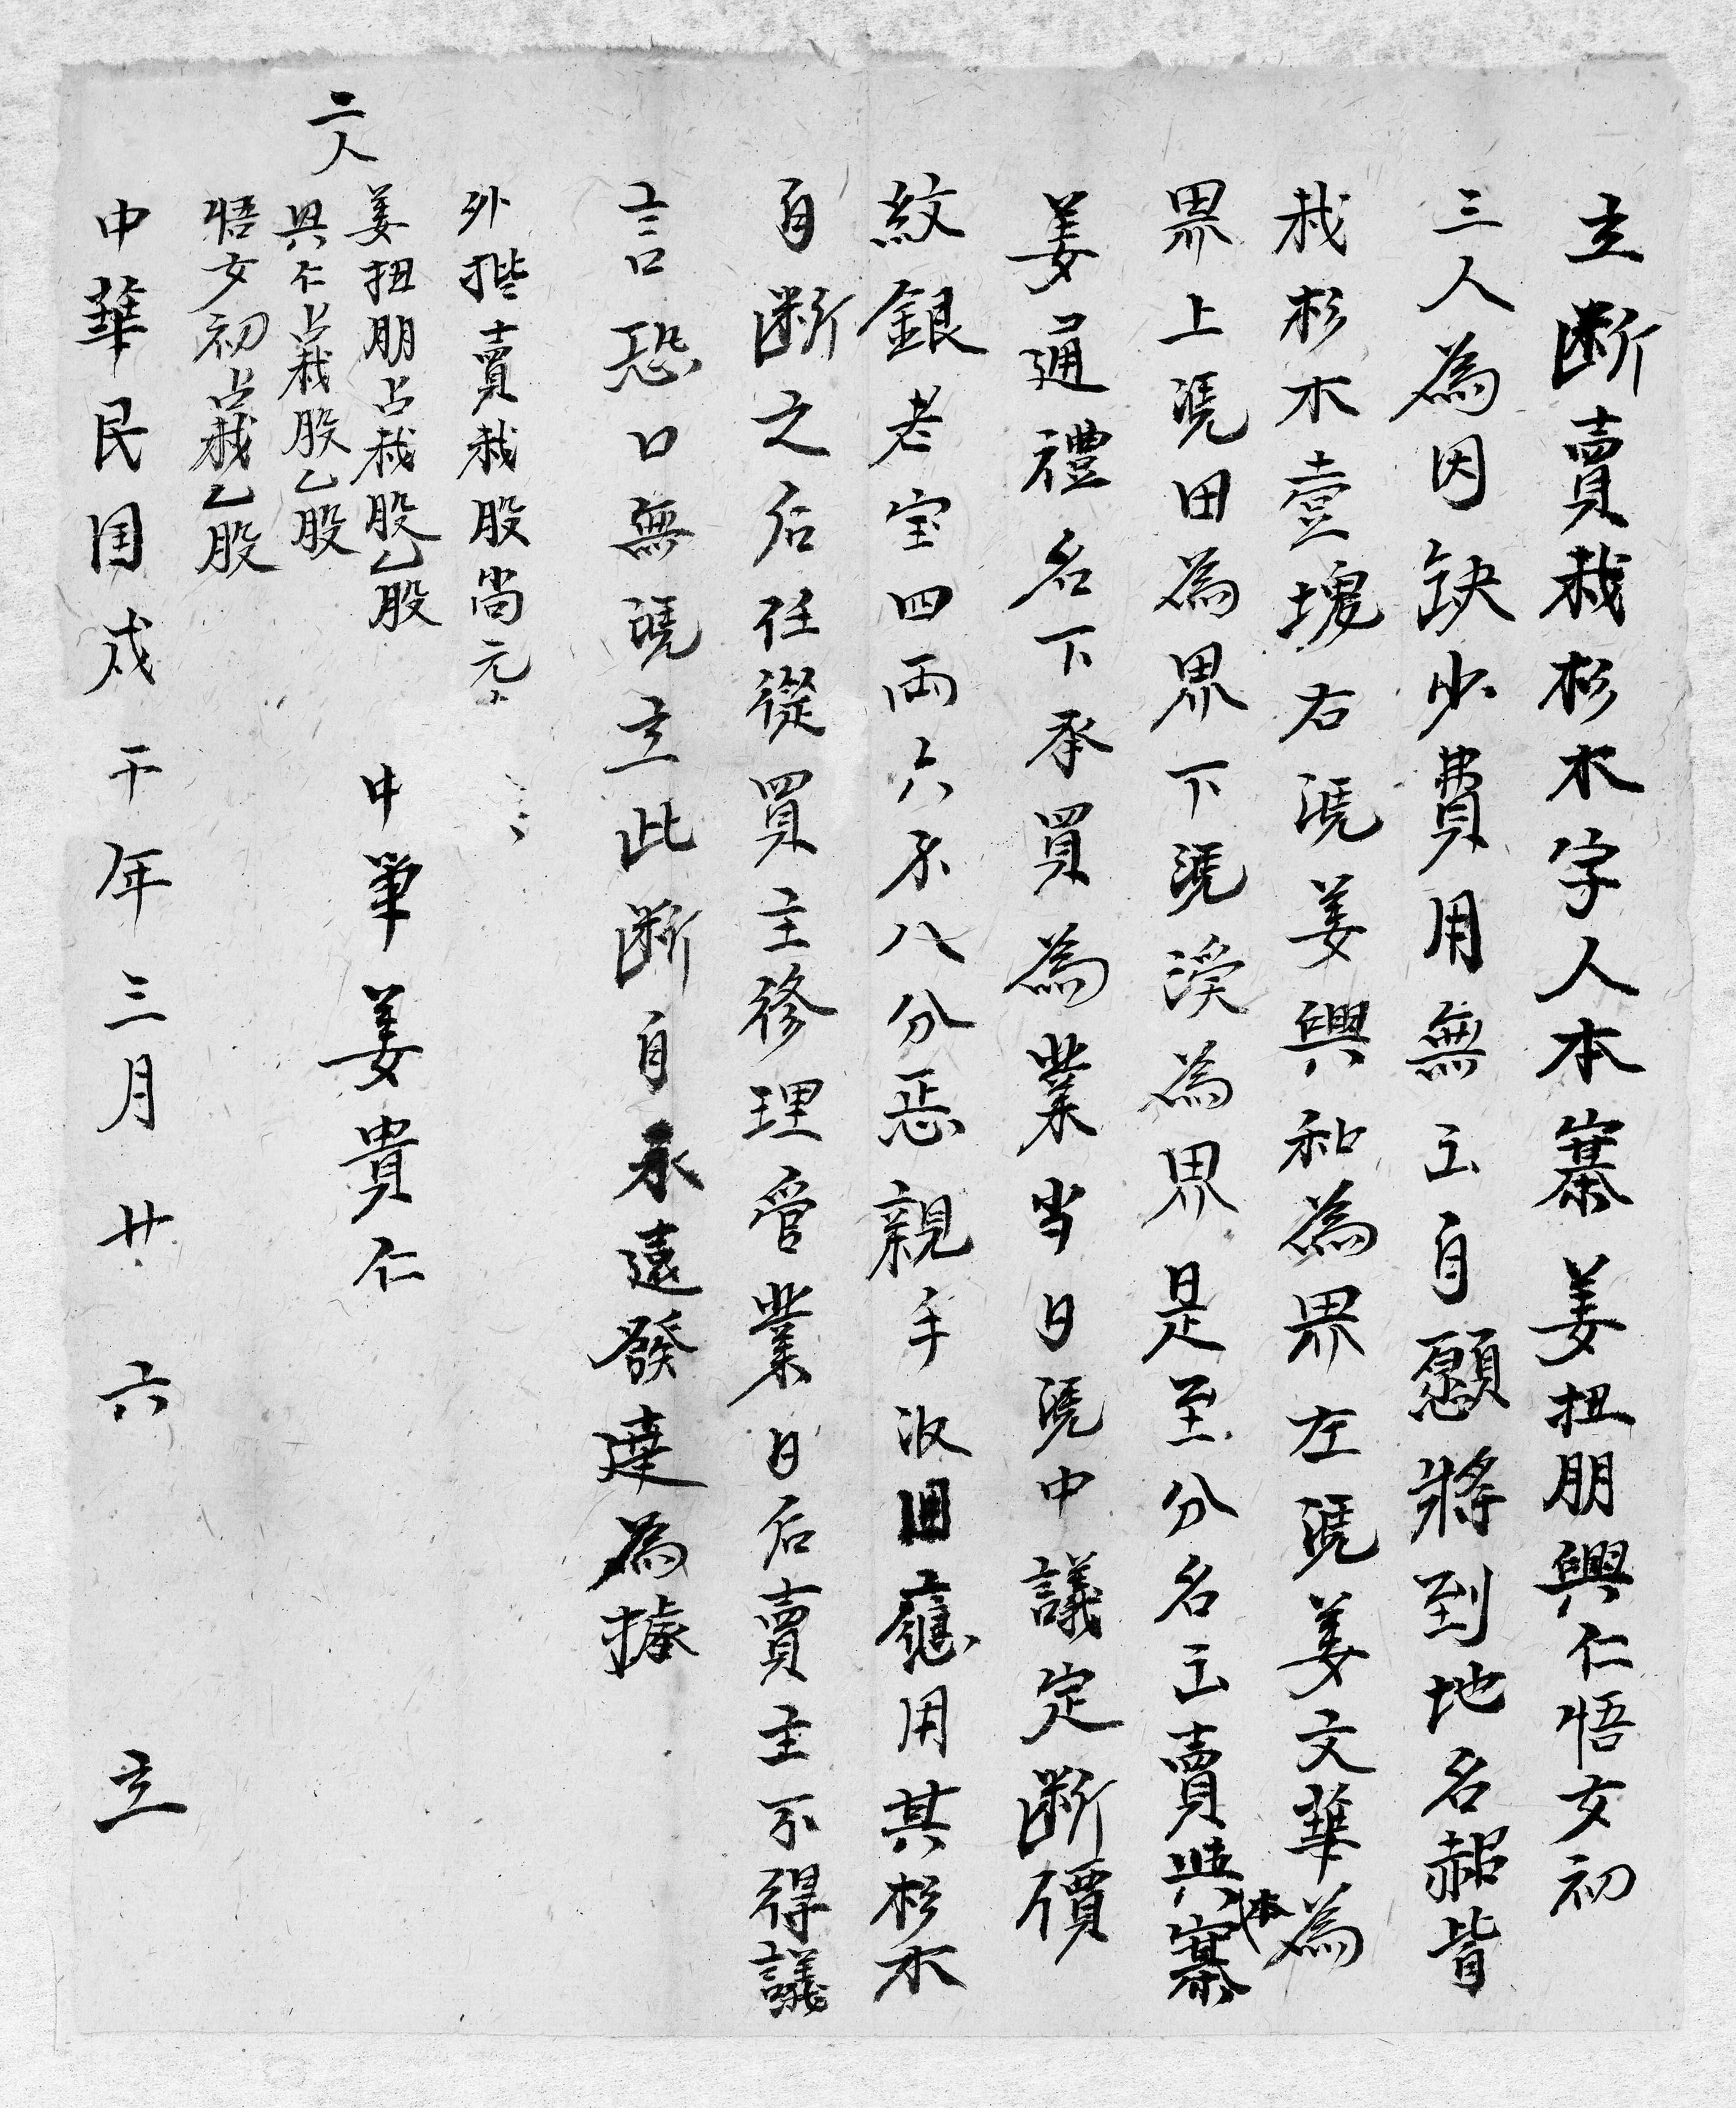 立断賣栽杉木字人本寨姜扭朋興仁悟女初
三人為因缺少費用無出自願將到地名赧皆
栽杉木壹塊右凴姜興和為界左凴姜文華為
界上凴田為界下凴渓為界是至分名出賣與本寨
姜通禮名下承買為業当日凴中議定断價
紋銀老宝四両六不八分恶親手收囬應用其杉木
自断之后任從買主修理管業日后賣主不得議
言恐口無凴立此断自承遠發達為據
外批賣栽股尚元
二人
姜扭朋占栽股乙股
興仁占栽股乙股
悟女初占栽乙股
中筆姜貴仁
中華民国戍十年三月廿六立